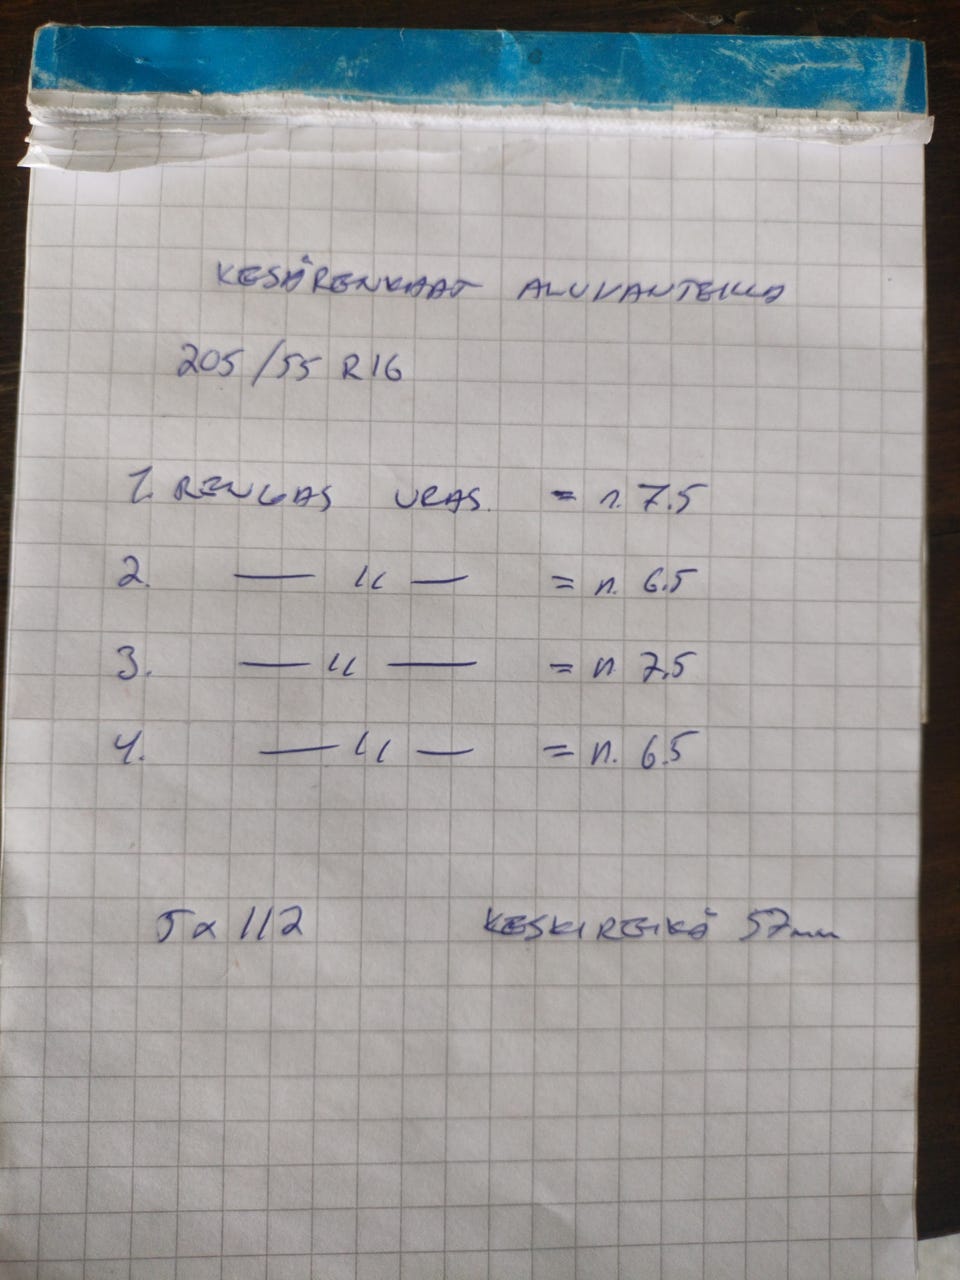 KESÄRENKAAT ALUVANTEILLA
205/55 R16
1. RENGAS URAS. = n. 7.5
2. — " — = n. 6.5
3. — " — = n 7.5
4. — " — = n. 6.5
5x112 KESKIREIKÄ 57mm